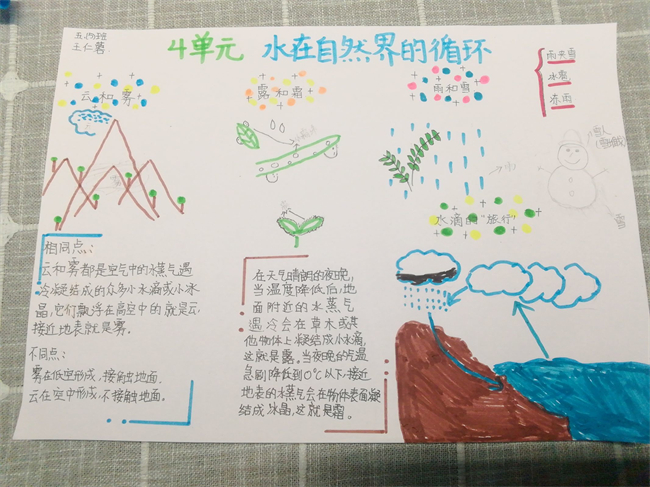 五四班
王仁蕾
4单元 水在自然界的循环
云和雾
露和霜
雨和雪
雨夹雪
冰雹
冻雨
水滴的"旅行"
雪
相同点:
云和雾都是空气中的水蒸气遇
冷凝结成的众多小水滴或小冰
晶,它们飘浮在高空中的就是云,
接近地表就是雾。
不同点:
雾在低空形成,接触地面.
云在空中形成,不接触地面.
在天气晴朗的夜晚,
当温度降低后,地
面附近的水蒸气
遇冷会在草木或其
他物体上凝结成小水滴,
这就是露。当夜晚的气温
急剧降低到0℃以下,接近
地表的水蒸气会在物体表面凝
结成冰晶,这就是霜。